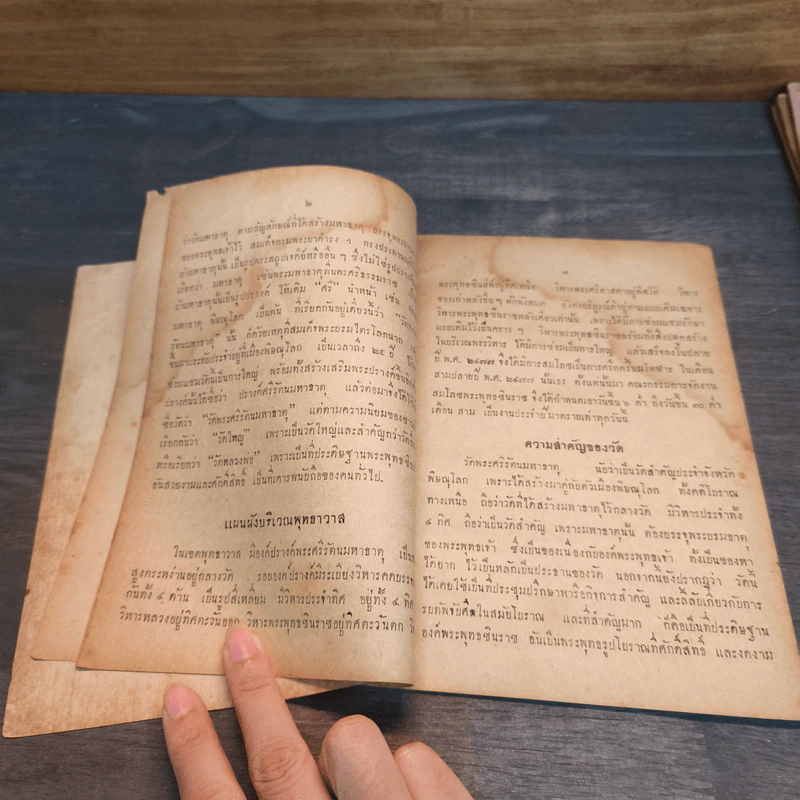 ๒
ว่าวัดมหาธาตุ ตามสัญลักษณ์ที่ได้สร้างมหาธาตุ บรรจุพระบรม
ของพระพุทธเจ้าไว้ สมเด็จกรมพระยาดำรง ฯ ทรงประทาน
ถ้ามหาธาตุนั้น เป็นรูปพระสถูปเจดีย์หรืออื่น ๆ ซึ่งไม่ใช่รูปปรางค์
เรียกว่า มหาธาตุ เช่นพระมหาธาตุที่นครศรีธรรมราช
ถ้ามหาธาตุนั้นเป็นรูปปรางค์ ให้เติม “ศรี” นำหน้า เช่น
มหาธาตุ พิษณุโลก เป็นต้น ที่เรียกกันอยู่เดี๋ยวนี้ว่า “วัด
รัตนมหาธาตุ” นั้น ก็ด้วยเหตุที่สมเด็จพระบรมไตรโลกนาถ
ขึ้นมาเสวยราชย์ประจำอยู่ที่เมืองพิษณุโลก เป็นเวลาถึง ๒๕ ปี
ซ่อมแซมวัดนี้เป็นการใหญ่ พร้อมทั้งสร้างเสริมพระปรางค์
ปรางค์นั้นได้ชื่อว่า ปรางค์ศรีรัตนมหาธาตุ แล้วต่อมาจึง
ชื่อวัดว่า “วัดพระศรีรัตนมหาธาตุ” แต่ตามความนิยมของ
เรียกกันว่า “วัดใหญ่” เพราะเป็นวัดใหญ่และสำคัญกว่าวัด
หรือเรียกว่า “วัดหลวงพ่อ” เพราะเป็นที่ประดิษฐานพระพุทธชินราช
อันสวยงามและศักดิ์สิทธิ์ เป็นที่เคารพนับถือของคนทั่วไป.
แผนผังบริเวณพุทธาวาส
ในเขตพุทธาวาส มีองค์ปรางค์พระศรีรัตนมหาธาตุ เป็น
สูงตระหง่านอยู่กลางวัด รอบองค์ปรางค์มีระเบียงวิหารคด
กันทั้ง ๔ ด้าน เป็นรูปสี่เหลี่ยม มีวิหารประจำทิศ อยู่ทั้ง ๔ ทิศ
วิหารหลวงอยู่ทิศตะวันออก วิหารพระพุทธชินราชอยู่ทิศตะวันตก วิ
พระพุทธชินสีห์อยู่ทิศเหนือ วิหารพระศรีศาสดาอยู่ทิศใต้ วิหาร
วิหารพระพุทธชินราชหลังเดียวเท่านั้น เพราะได้มีการซ่อมแซมรักษา
แบบเดิมไว้เป็นคราว ๆ วิหารพระพุทธชินราชพร้อมทั้งสิ่งปลูกสร้าง
ในบริเวณพระวิหาร ได้มีการซ่อมเป็นการใหญ่ แล้วเสร็จลงในปลาย
ปี พ.ศ. ๒๔๗๗ จึงได้มีการสมโภชเป็นการครึกครื้นมโหฬาร ในเดือน
สามปลายปี พ.ศ. ๒๔๗๗ นั้นเอง ตั้งแต่นั้นมา คณะกรรมการจัดงาน
สมโภชพระพุทธชินราช จึงได้กำหนดเอาวันขึ้น ๖ ค่ำ ถึงวันขึ้น ๑๓ ค่ำ
เดือน สาม เป็นงานประจำปี มาตราบเท่าทุกวันนี้
ความสำคัญของวัด
วัดพระศรีรัตนมหาธาตุ นับว่าเป็นวัดสำคัญประจำจังหวัด
พิษณุโลก เพราะได้สร้างมาคู่กับตัวเมืองพิษณุโลก ทั้งคติโบราณ
ทางเหนือ ถือว่าวัดที่ได้สร้างมหาธาตุไว้กลางวัด มีวิหารประจำทั้ง
๔ ทิศ ถือว่าเป็นวัดสำคัญ เพราะมหาธาตุนั้น ต้องบรรจุพระบรมธาตุ
ของพระพุทธเจ้า ซึ่งเป็นของเนื่องกับองค์พระพุทธเจ้า ทั้งเป็นของหา
ได้ยาก ไว้เป็นหลักเป็นประธานของวัด นอกจากนี้ยังปรากฏว่า วัดนี้
ได้เคยใช้เป็นที่ประชุมปรึกษาหารือกิจการสำคัญ และลิลับเกี่ยวกับการ
รบทัพจับศึกในสมัยโบราณ และที่สำคัญมาก ก็คือเป็นที่ประดิษฐาน
องค์พระพุทธชินราช อันเป็นพระพุทธรูปโบราณที่ศักดิ์สิทธิ์ และงดงาม